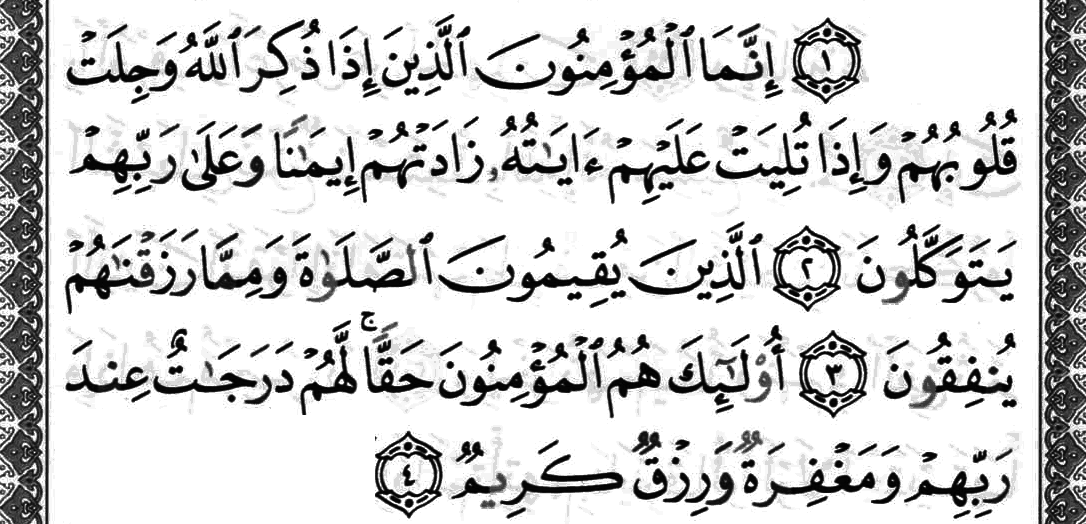 ١ إِنَّمَا ٱلْمُؤْمِنُونَ ٱلَّذِينَ إِذَا ذُكِرَ ٱللَّهُ وَجِلَتْ
قُلُوبُهُمْ وَإِذَا تُلِيَتْ عَلَيْهِمْ ءَايَٰتُهُۥ زَادَتْهُمْ إِيمَٰنًا وَعَلَىٰ رَبِّهِمْ
يَتَوَكَّلُونَ ٢ ٱلَّذِينَ يُقِيمُونَ ٱلصَّلَوٰةَ وَمِمَّا رَزَقْنَٰهُمْ
يُنفِقُونَ ٣ أُو۟لَٰٓئِكَ هُمُ ٱلْمُؤْمِنُونَ حَقًّا ۚ لَّهُمْ دَرَجَٰتٌ عِندَ
رَبِّهِمْ وَمَغْفِرَةٌ وَرِزْقٌ كَرِيمٌ ٤